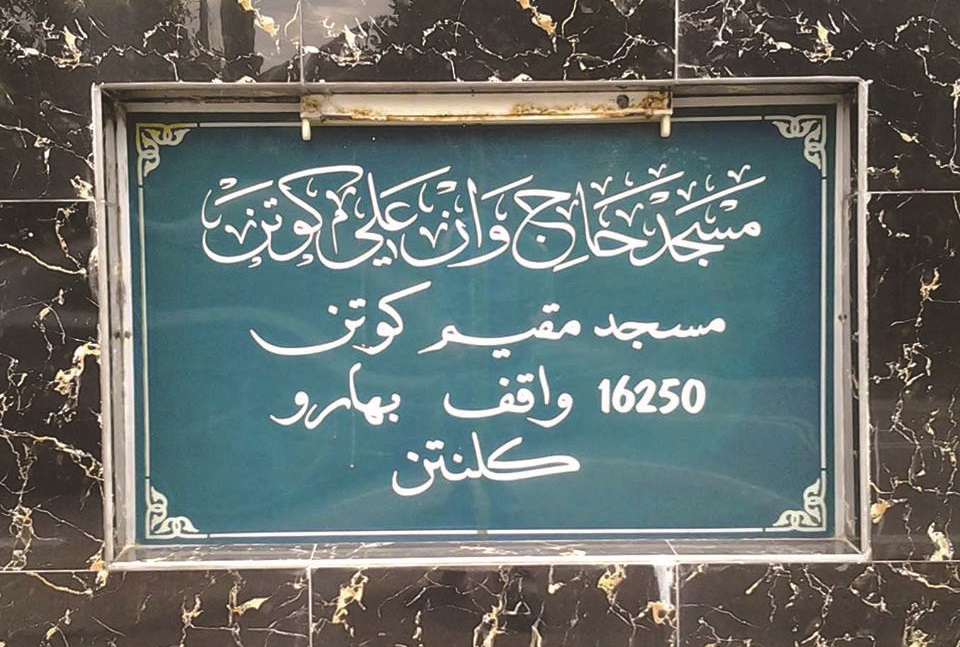 مسجد حاج وان علي كوتن
مسجد مقيم كوتن
16250 واقف بهارو
كلنتن